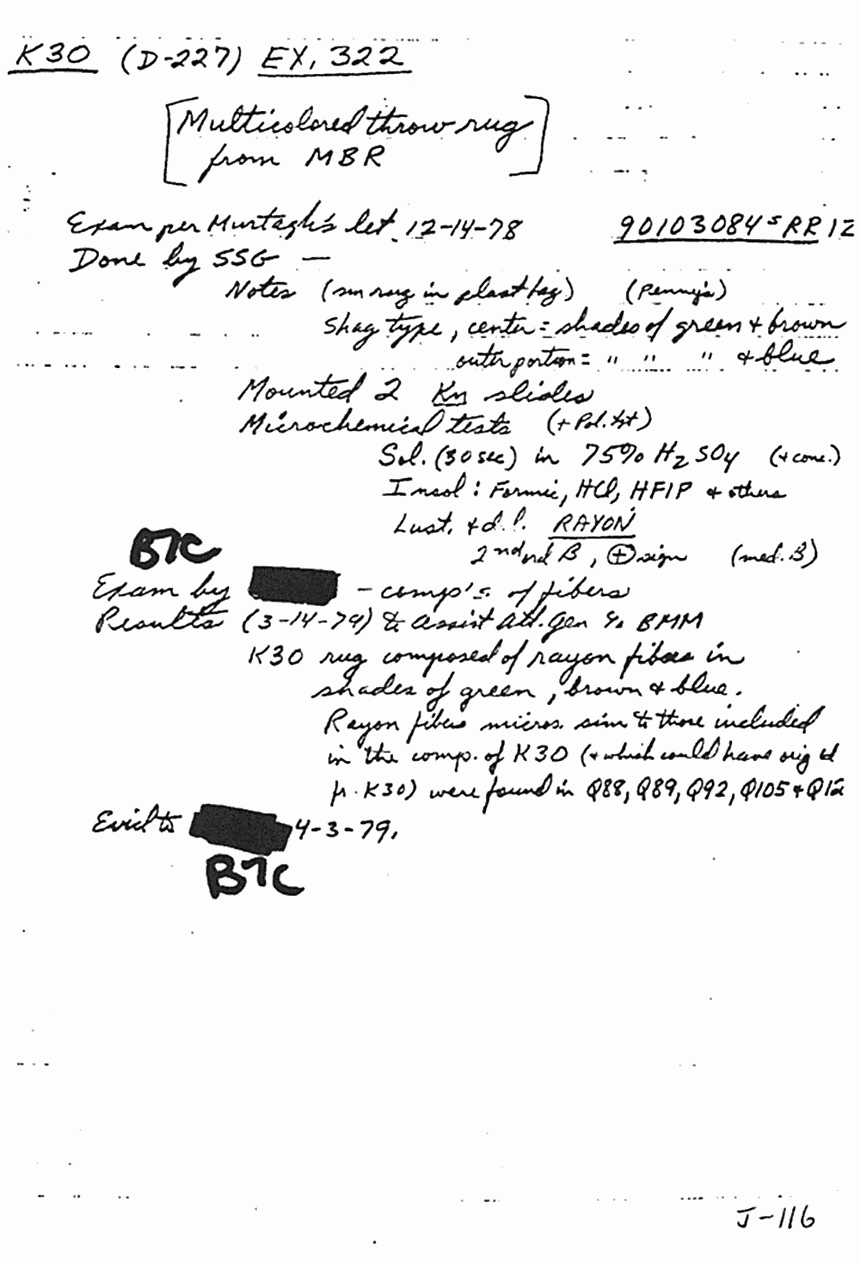 K30 (D-227) EX, 322
[Multicolored throw rug
from MBR]
Exam per Murtagh's let. 12-14-78 90103084 S RR 12
Done by SSG —
Notes (sm rug in plast bag) (Penny's)
Shag type, center = shades of green + brown
outer portion = " " " + blue
Mounted 2 Kn slides
Microchemical tests (+ Pol. lt)
Sol. (30 sec) in 75% H2SO4 (+ conc.)
Insol: Formic, HCl, HFIP + others
Lust. + d.l. RAYON
2nd ord B, ⊕ sign (med. B)
B7C
Exam by — comp's. of fibers
Results (3-14-79) to assist att. gen % BMM
K30 rug composed of rayon fibers in
shades of green, brown + blue.
Rayon fibers micros. sim to those included
in the comp. of K30 (+ which could have orig'd
fr. K30) were found in Q88, Q89, Q92, Q105 + Q12
Evid to 4-3-79.
B7C
J-116